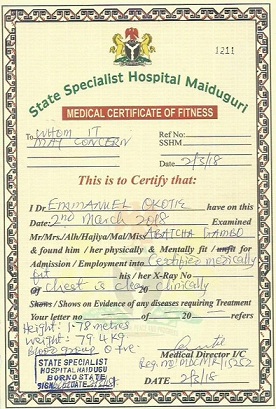 1211
State Specialist Hospital Maiduguri
MEDICAL CERTIFICATE OF FITNESS
To WHOM IT
MAY CONCERN
Ref No:
SSHM
Date 2/3/18
This is to Certify that:
I Dr EMMANUEL OKOTIE have on this
Date: 2nd March 2018 Examined
Mr/Mrs./Alh/Hajiya/Mal/Miss ABATCHA GAMBO
& found him / her physically & Mentally fit / unfit for
Admission / Employment into Certified medically
fit his / her X-Ray No
of chest is clear clinically 20
Shows / Shows on Evidence of any diseases requiring Treatment
Your letter no of 20 refers
Height: 1.78 metres
Weight: 79.4Kg
Blood group O +ve
Medical Director I/C
Reg. No: MDCN/R/15252
STATE SPECIALIST
HOSPITAL MAIDUGU
BORNO STATE
SIGN
DATE 2/3/18